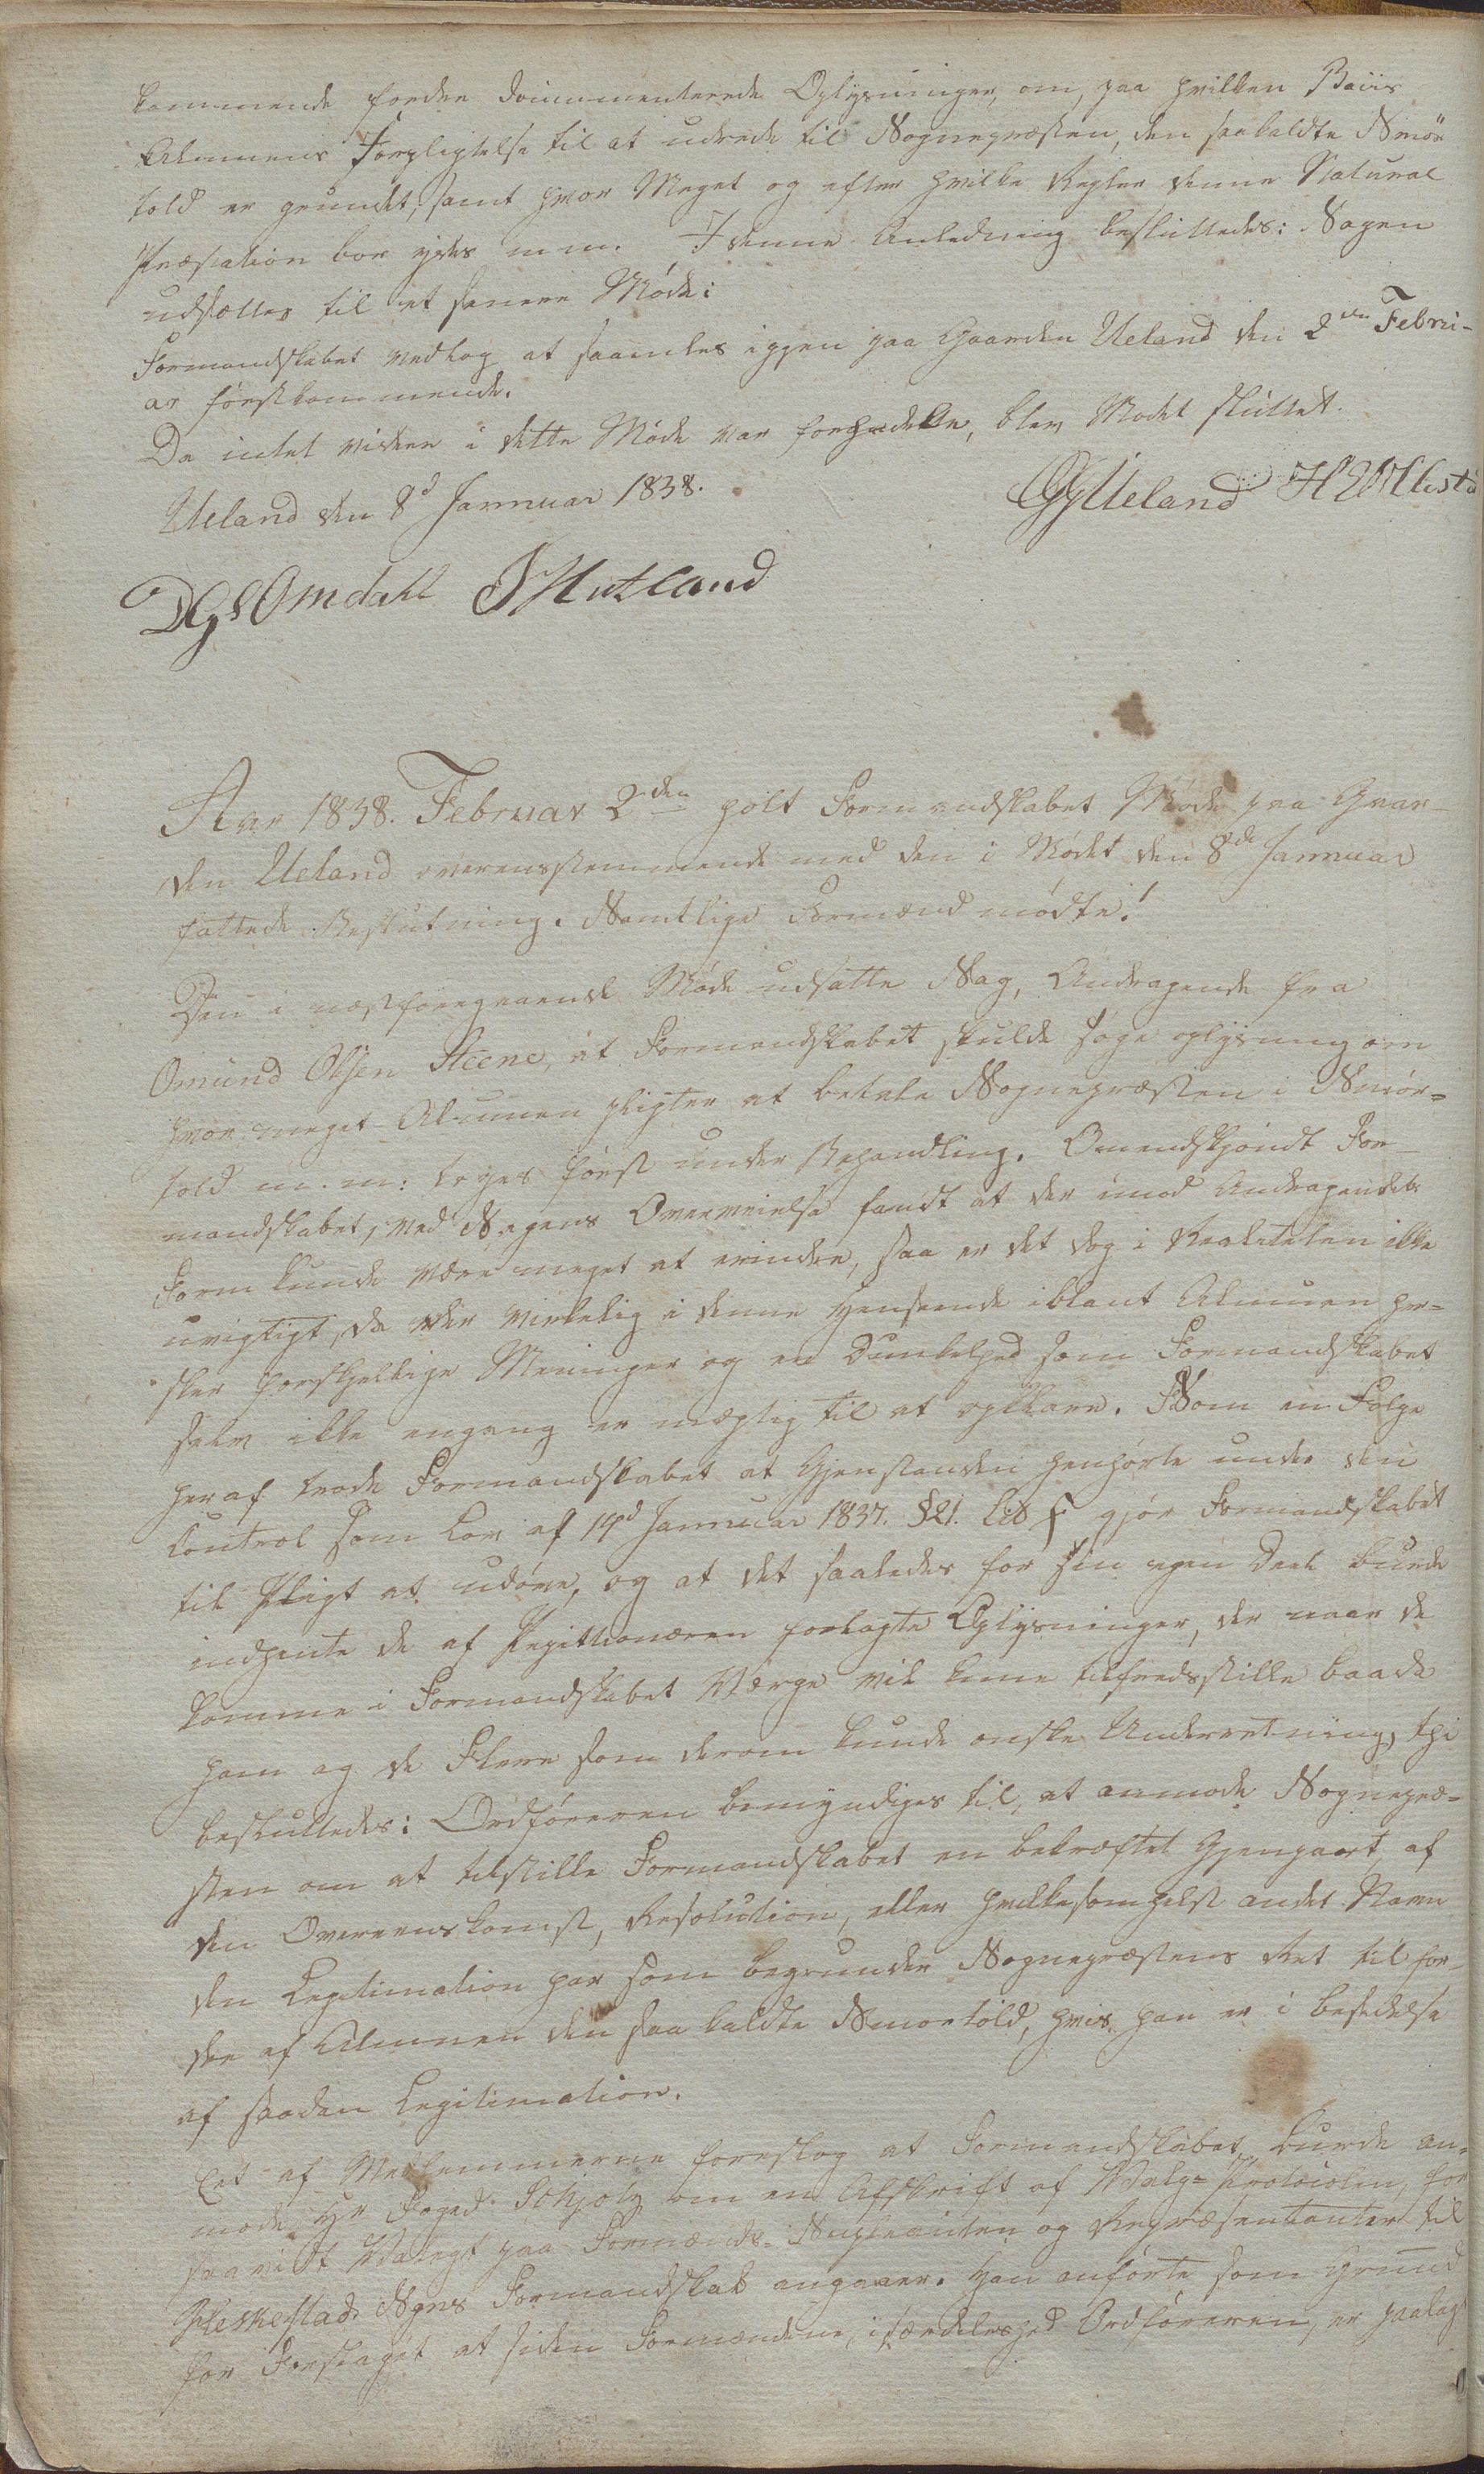 kommende fordre documenterede Oplysninger, om, paa hvilken Basis
Almuens Forpligtelse til at udrede til Sognepræsten, den saakaldte Smør
told er grundet, samt hvor Meget og efter hvilke Regler denne Natural
Præstation bør ydes m m. I denne Anledning besluttedes: Sagen
udsættes til et senere Møde:
Formandskabet vedtog at samles igjen paa Gaarden Ueland den 2den Febru-
ar førstkommende.
Da intet videre i dette Møde var forhandle, blev Modet sluttet.
Ueland den 8d Januar 1838.
OGUeland
DGsOmdahl Hetland
Aar 1838. Februar 2den holt Formandskabet Møde paa Gaar-
den Ueland overensstemmende med den i Mødet den 8de Januar
fattede Beslutning. Samtlige Formænd mødte!
Den i næstforegaaende Møde udsatte Sag, Andragende fra
Omund Olsen Steene, at Formandskabet skulde søge oplysning om
hvor meget Almuen pligter at betale Sognepræsten i Smør=
told m. m: toges først under Behandling. Omendskjøndt For-
mandskabet, ved Sagens Overveielse fandt at der imod Andragendets
Form kunde være meget at erindre, saa er det dog i Realiteten ikke
uvigtigt, da der virkelig i denne Henseende iblant Almuen her=
sker forskjellige Meninger og en Dunkelhed som Formandskabet
selv ikke engang er mægtig til at opklare. Som en Følge
heraf troede Formandskabet at Gjenstanden henhørte under den
Control som Lov af 14d Januar 1837. §21. Lit f gjør Formandskabet
til Pligt at udøve, og at det saaledes for sin egen Deel burde
indhente de af Petitionæren forlagte Oplysninger, der naar de
komme i Formandskabet Værge vil kunne tilfredsstille baade
ham og de Flere som derom kunde ønske Underretning, thi
besluttedes: Ordføreren bemyndiges til, at anmode Sognepræ=
sten om at tilstille Formandskabet en bekræftet Gjenpart, af
den Overeenskomst, Resolution, eller hvilketsomhelst andet Navn
den Legitimation har som begrunder Sognepræstens Ret til for-
dre af Almuen den saa kaldte Smortold, hvis han er i besiddelse
af saadan Legitimation.
Eet af Medlemmerne foreslog at Formandskabet burde an=
mode Hr Foged Schjøtz om en Afskrift af Valg=Protocolen, for
saavidt Valget paa Formænds-Suplanten og Repræsentanter til
Heskestads Sogns Formandskab angaaer. Han anførte som Grund
for Forslaget at siden Formændene, isærdeleshed Ordføreren, er paalagt